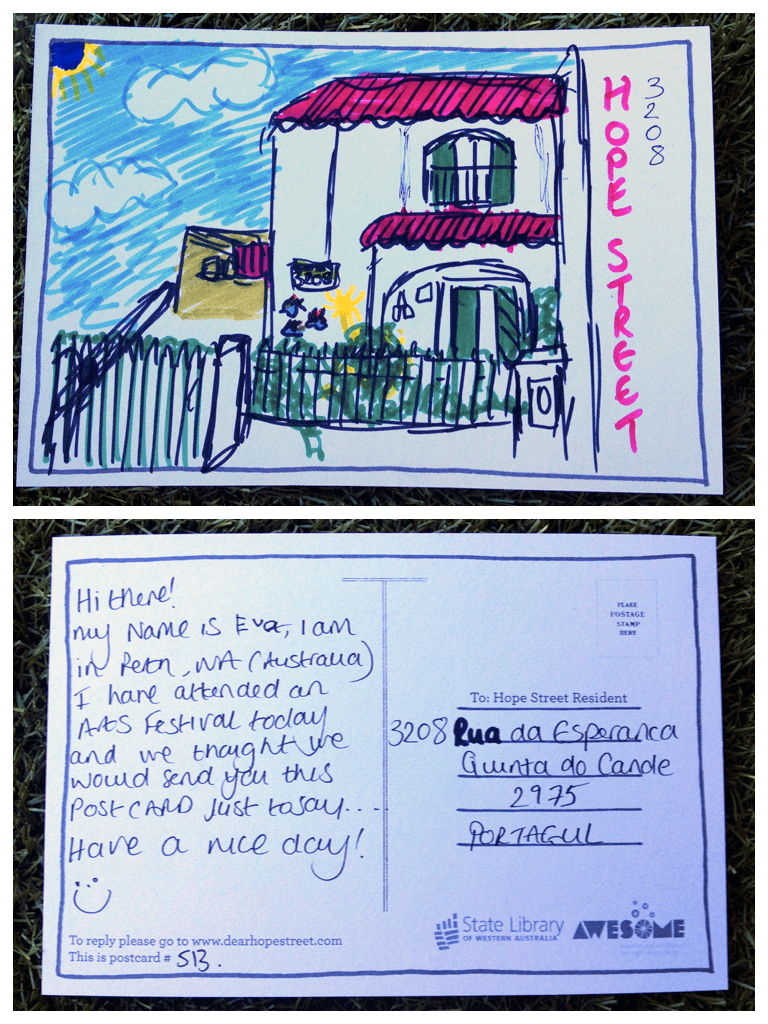 3208
HOPE STREET
3208
Hi there!
my Name is Eva, I am
in Perth, WA (Australia)
I have attended an
ARTS Festival today
and we thought we
would send you this
POSTCARD just to say....
Have a nice day!
To reply please go to www.dearhopestreet.com
This is postcard # 513.
PLACE
POSTAGE
STAMP
HERE
To: Hope Street Resident
3208 Rua da Esperanca
Quinta do Conde
2975
PORTAGUL
State Library
OF WESTERN AUSTRALIA
AWESOME